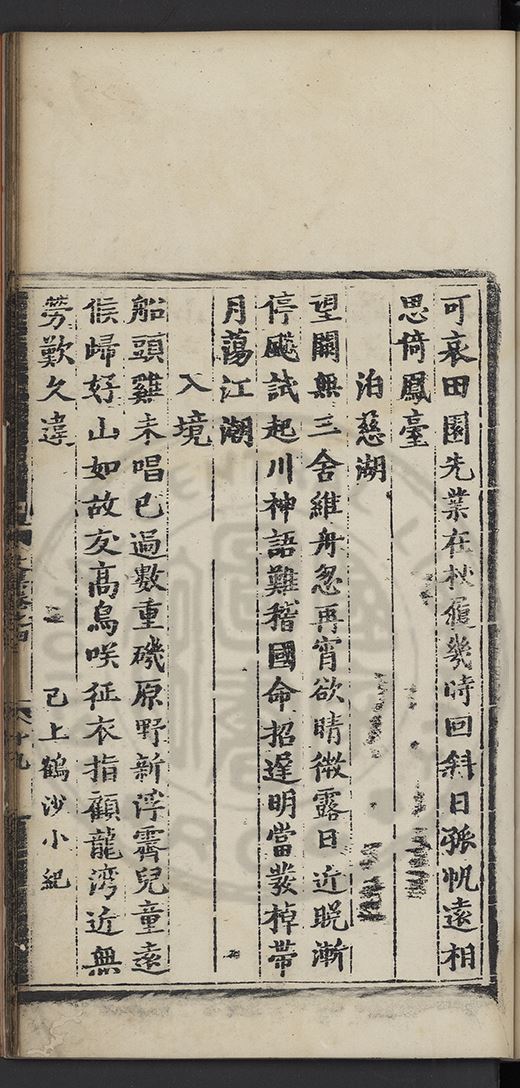 可哀田園先業在杖屨幾時回斜日孤帆遠相
思倚鳳臺
泊慈湖
望關無三舍維舟忽再宵欲晴微露日近晩漸
停颷試起川神語難稽國命招遲明當發棹帶
月蕩江湖
入境
船頭雞未唱已過數重磯原野新浮霽兒童遠
候歸好山如故友高鳥咲征衣指顧龍湾近無
勞歎久違
已上鶴沙小紀